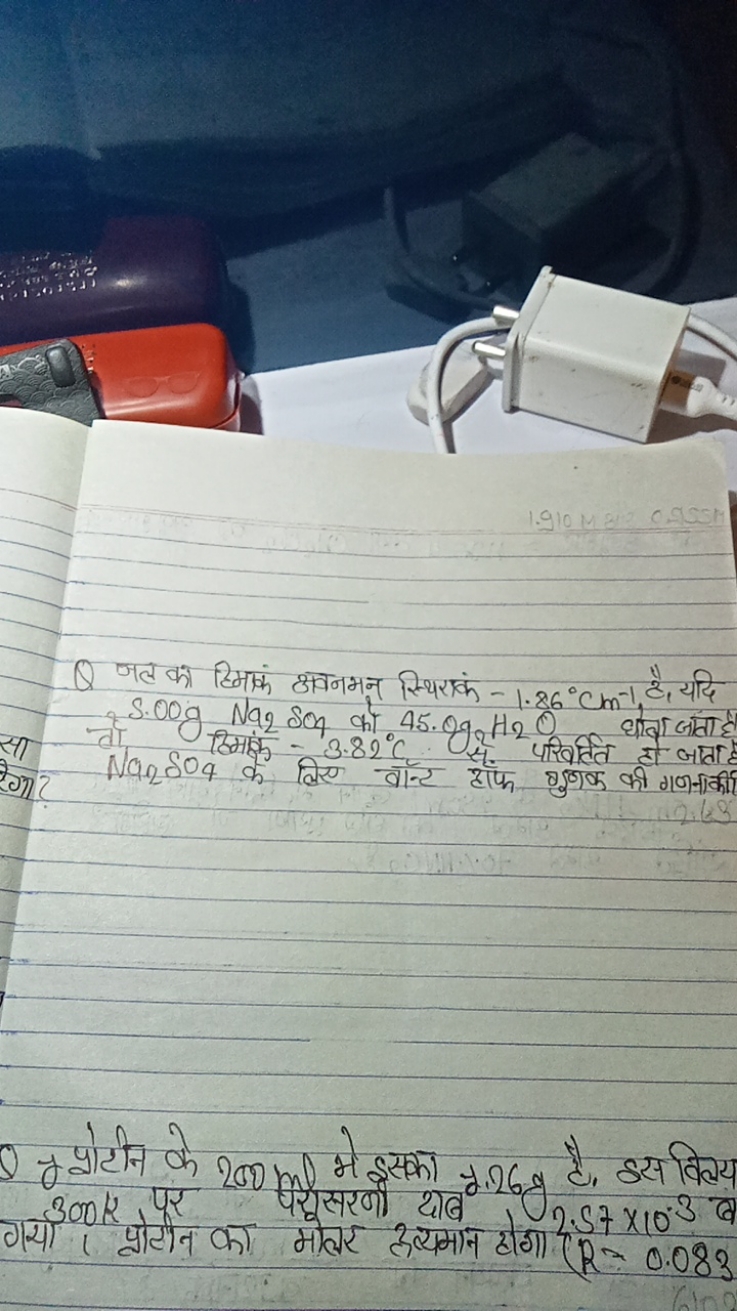 1.910 M
Q जल का हिमांक अवनमन स्थिरांक - 1.86°Cm⁻¹ है, यदि
5.00g Na2SO4 को 45.0g H2O घोला जाता है
तो हिमांक - 3.82°C से परिवर्तित हो जाता है
Na2SO4 के लिए वॉन्ट हॉफ गुणक की गणना
2.63
Q प्रोटीन के 200 ml में इसका 1.26g है, इस विलय
300k पर परासरणी दाब 2.57 x10⁻³ ब
गया। प्रोटीन का मोलर द्रव्यमान होगा (R = 0.083